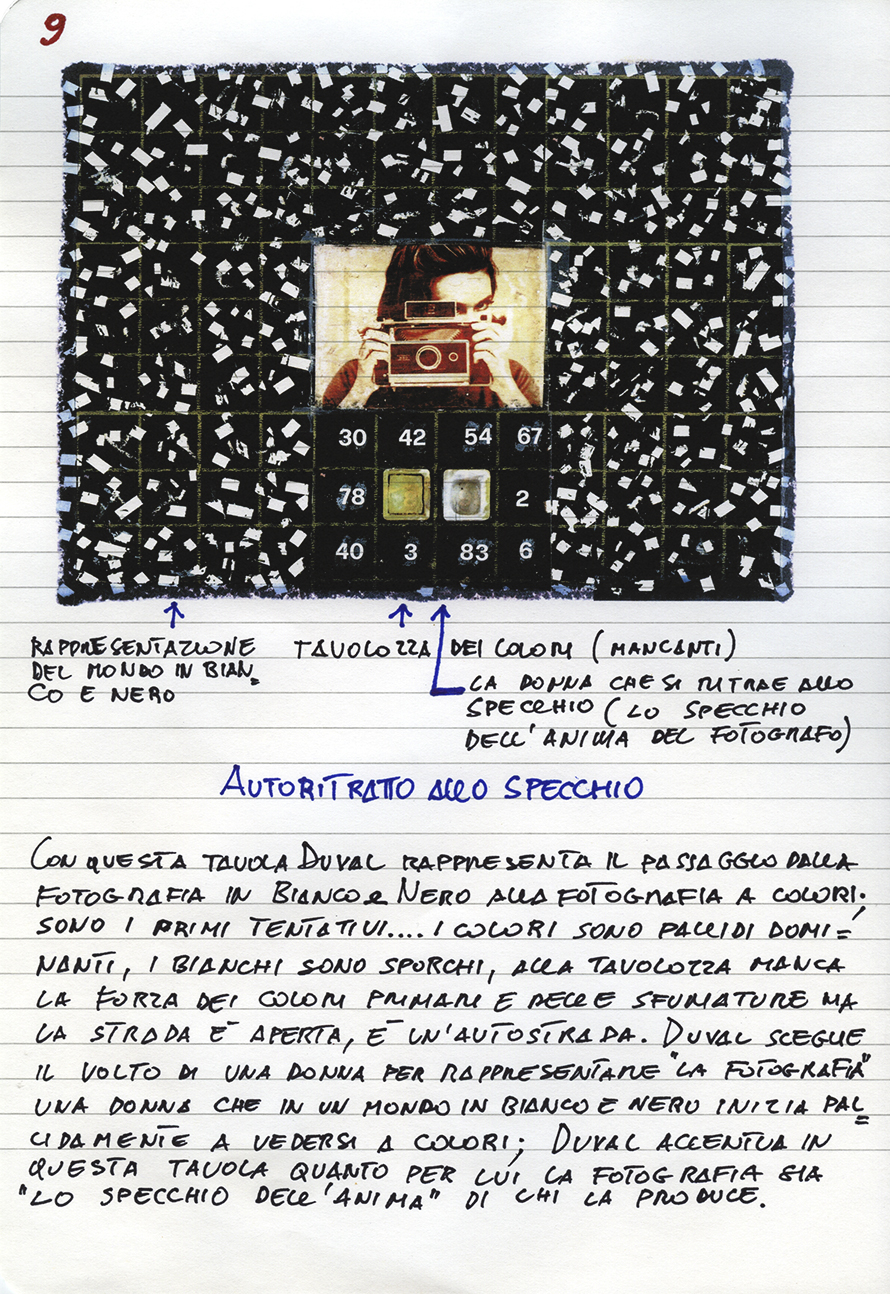 9
30 42 54 67
78 2
40 3 83 6
RAPPRESENTAZIONE
DEL MONDO IN BIAN=
CO E NERO
TAVOLOZZA DEI COLORI (MANCANTI)
LA DONNA CHE SI RITRAE ALLO
SPECCHIO (LO SPECCHIO
DELL'ANIMA DEL FOTOGRAFO)
AUTORITRATTO ALLO SPECCHIO
CON QUESTA TAVOLA DUVAL RAPPRESENTA IL PASSAGGIO DALLA
FOTOGRAFIA IN BIANCO e NERO ALLA FOTOGRAFIA A COLORI;
SONO I PRIMI TENTATIVI.... I COLORI SONO PALLIDI DOMI=
NANTI, I BIANCHI SONO SPORCHI, ALLA TAVOLOZZA MANCA
LA FORZA DEI COLORI PRIMARI E DELLE SFUMATURE MA
LA STRADA E' APERTA, E' UN'AUTOSTRADA. DUVAL SCEGLIE
IL VOLTO DI UNA DONNA PER RAPPRESENTARE "LA FOTOGRAFIA"
UNA DONNA CHE IN UN MONDO IN BIANCO E NERO INIZIA PAL=
LIDAMENTE A VEDERSI A COLORI; DUVAL ACCENTUA IN
QUESTA TAVOLA QUANTO PER LUI LA FOTOGRAFIA SIA
"LO SPECCHIO DELL'ANIMA" DI CHI LA PRODUCE.